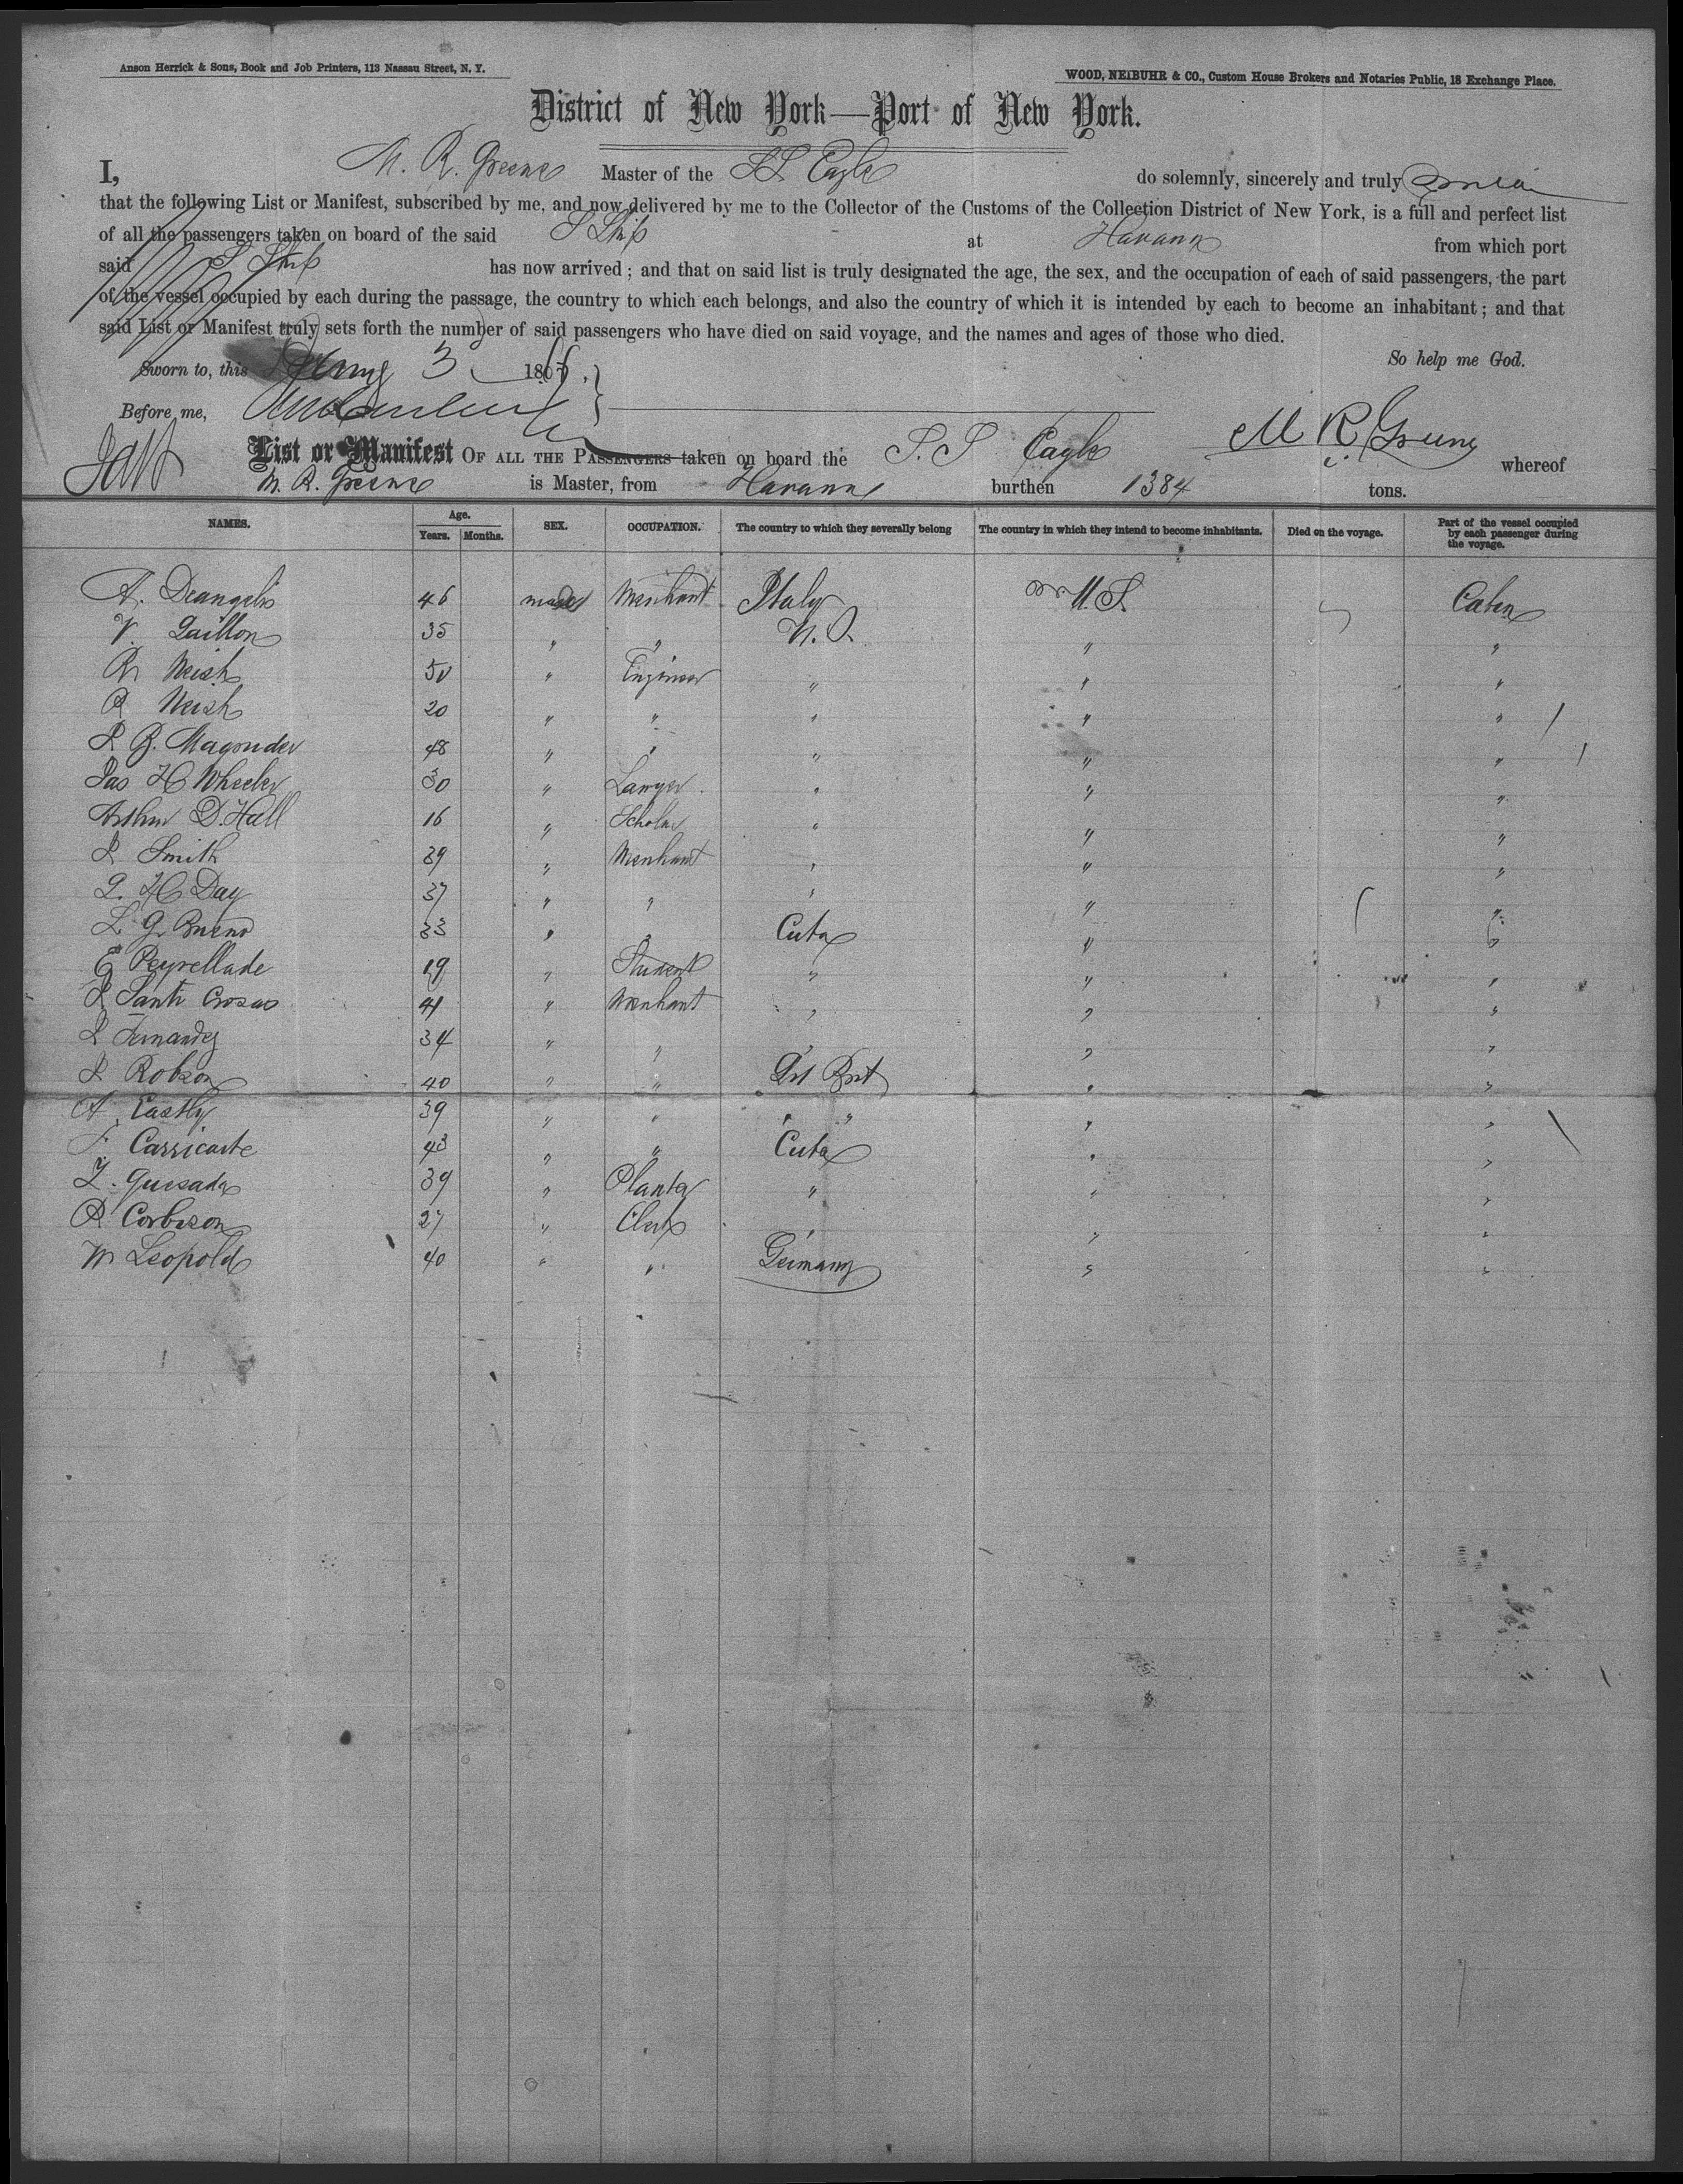 Anson Herrick & Sons, Book and Job Printers, 113 Nassau Street, N. Y.
WOOD, NEIBUHR & CO., Custom House Brokers and Notaries Public, 18 Exchange Place.
District of New York—Port of New York.
I, M. R. Greene Master of the S.S. Eagle do solemnly, sincerely and truly
that the following List or Manifest, subscribed by me, and now delivered by me to the Collector of the Customs of the Collection District of New York, is a full and perfect list
of all the passengers taken on board of the said S Ship at Havana from which port
said S Ship has now arrived; and that on said list is truly designated the age, the sex, and the occupation of each of said passengers, the part
of the vessel occupied by each during the passage, the country to which each belongs, and also the country of which it is intended by each to become an inhabitant; and that
said List or Manifest truly sets forth the number of said passengers who have died on said voyage, and the names and ages of those who died.
So help me God.
Sworn to, this 3 186
Before me,
M R Greene
List or Manifest OF ALL THE PASSENGERS taken on board the S. S Eagle whereof
M. R. Greene is Master, from Havana burthen 1384 tons.
NAMES. Age. Years. Months. SEX. OCCUPATION. The country to which they severally belong The country in which they intend to become inhabitants. Died on the voyage. Part of the vessel occupied by each passenger during the voyage.
A. Deangelis 46 male Merchant Italy U.S. Cabin
V. Gaillon 35 " " U.S. " "
R Neish 50 " Engineer " " "
R Neish 20 " " " " "
J. B. Magruder 48 " " " " "
Jas H Wheeler 30 " Lawyer " " "
Arthur D. Hall 16 " Scholar " " "
J Smith 39 " Merchant " " "
G. H Day 37 " " " " "
L. G. Bueno 33 " " Cuba " "
E Peyrellade 19 " Student " " "
J Santi Crosas 41 " Merchant " " "
J Fernandez 34 " " " " "
J Robson 40 " " Grt Brit " "
A. Eastly 39 " " " " " "
F. Carricarte 43 " " Cuba " "
Z. Quesada 39 " Planter " " "
R Corbison 27 " Clerk " " "
M Leopold 40 " " Germany " "